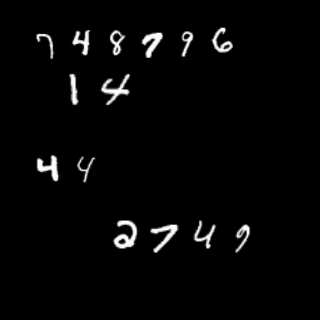 748796
14
44
2749